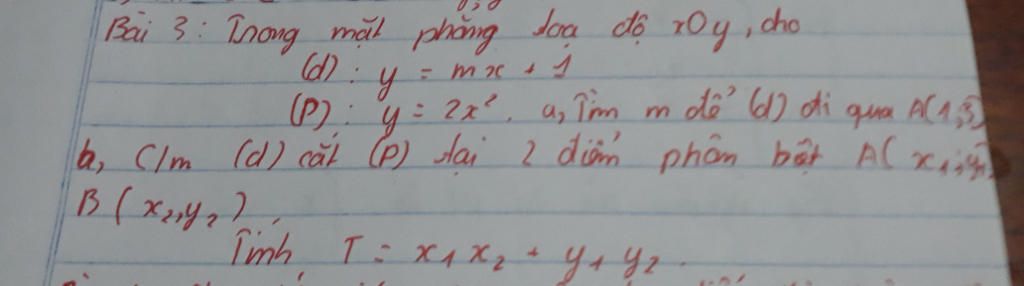 Bài 3: Trong mặt phẳng toạ độ xOy, cho
(d): y = mx + 1
(P): y = 2x². a, Tìm m để (d) đi qua A(1;3)
b, C/m (d) cắt (P) tại 2 điểm phân bật A(x₁;y₁)
B(x₂,y₂).
Tính T = x₁x₂ + y₁y₂.